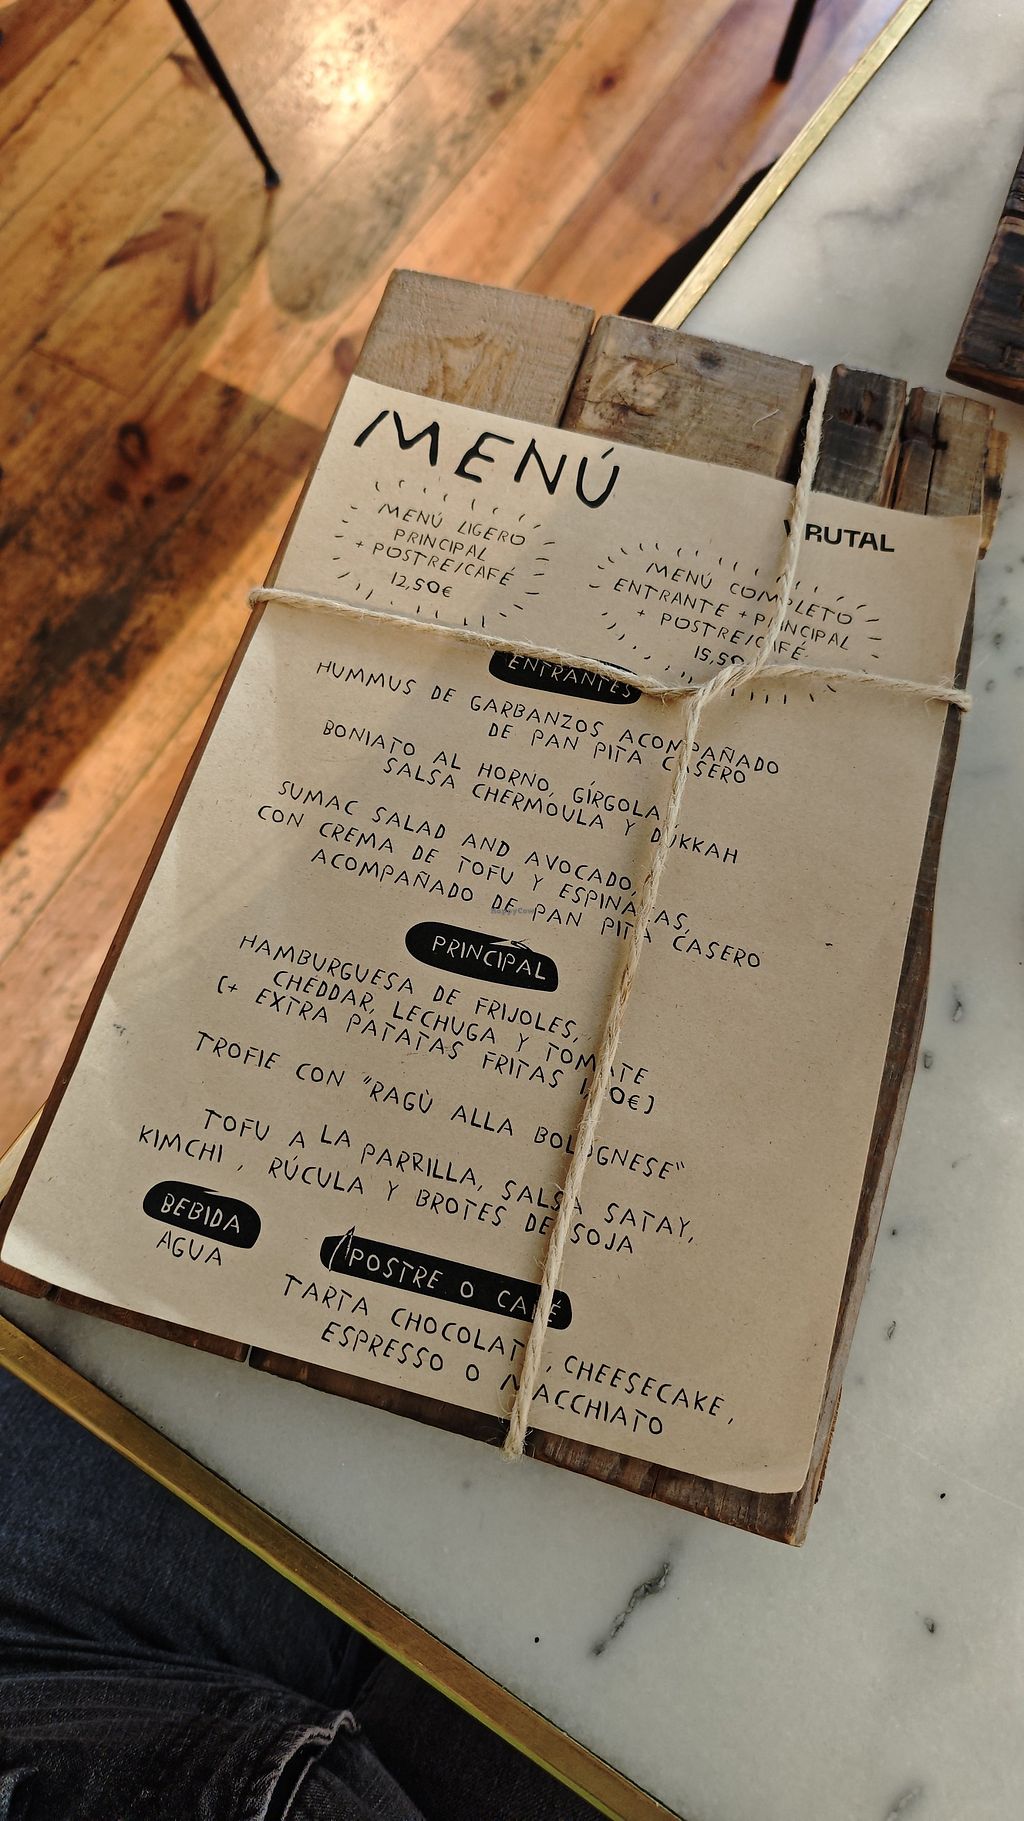 MENÚ
VRUTAL
MENÚ LIGERO
PRINCIPAL
+ POSTRE/CAFÉ
12,50€
MENÚ COMPLETO
ENTRANTE + PRINCIPAL
+ POSTRE/CAFÉ
ENTRANTES
HUMMUS DE GARBANZOS ACOMPAÑADO
DE PAN PITA CASERO
BONIATO AL HORNO, GÍRGOLA,
SALSA CHERMOULA Y DUKKAH
SUMAC SALAD AND AVOCADO,
CON CREMA DE TOFU Y ESPINACAS,
ACOMPAÑADO DE PAN PITA CASERO
HappyCow
PRINCIPAL
HAMBURGUESA DE FRIJOLES,
CHEDDAR, LECHUGA Y TOMATE
(+ EXTRA PATATAS FRITAS
TROFIE CON "RAGÙ ALLA BOLOGNESE"
TOFU A LA PARRILLA, SALSA SATAY,
KIMCHI, RÚCULA Y BROTES DE SOJA
BEBIDA
AGUA
POSTRE O CAFÉ
TARTA CHOCOLATE, CHEESECAKE,
ESPRESSO O MACCHIATO